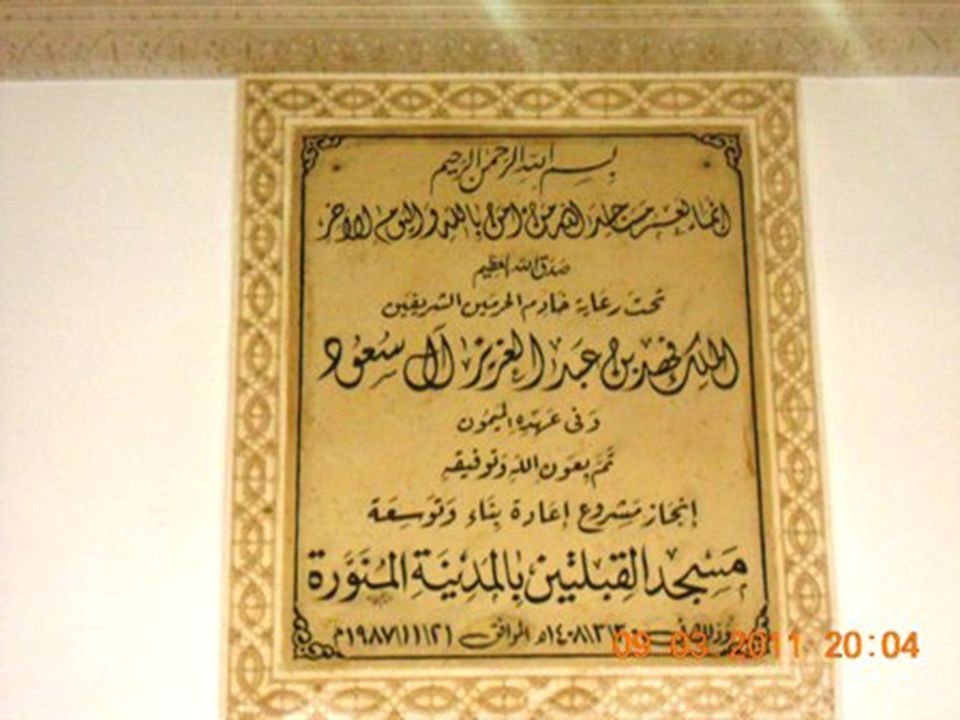 بسم الله الرحمن الرحيم
انما يعمر مساجد الله من امن بالله واليوم الاخر
صدق الله العظيم
تحت رعاية خادم الحرمين الشريفين
الملك فهد بن عبد العزيز آل سعود
وفي عهده الميمون
تم بعون الله وتوفيقه
إنجاز مشروع إعادة بناء وتوسعة
مسجد القبلتين بالمدينة المنورة
الموافق ١٩٨٧/١١/٢١م
09 03 2011 20:04